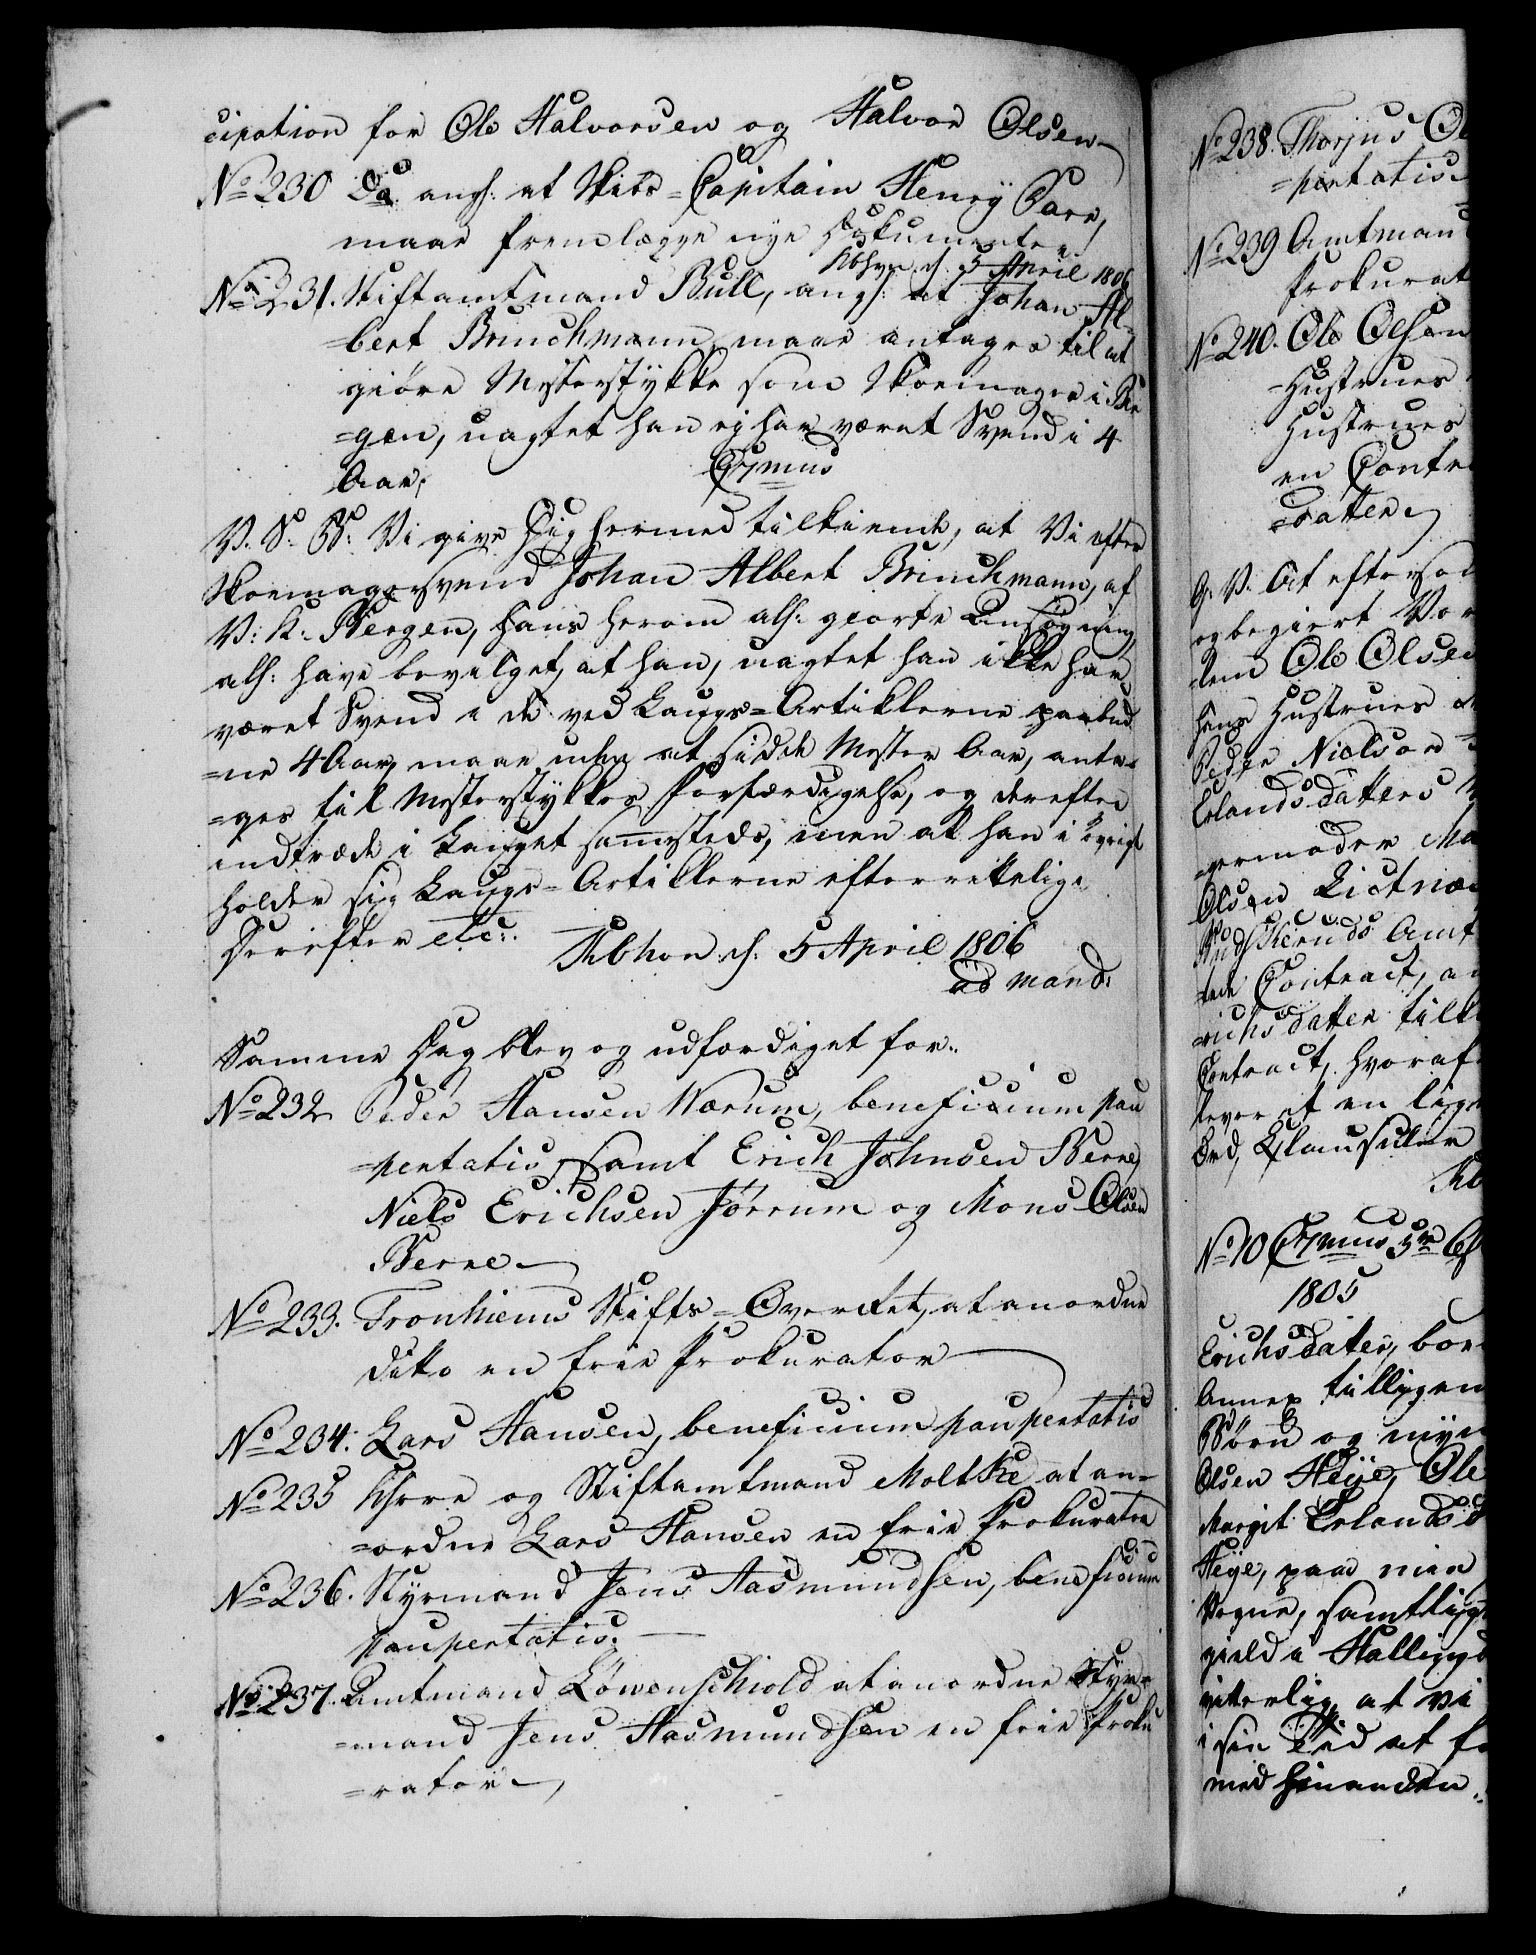 cipation for Ole Halvorsen og Halvor Olsen
No 230 Do angl: at Skibs-Capitain Henry Pare,
maae fremlægge nye Dokumenter.
Kbhvn d. 5 April 1806
No 231. Stiftamtmand Bull, angl: at Johan Al-
=bert Brinchmann, maae antages til at
giøre Mesterstykke som Skoemager i Ber
=gen, uagtet han ej har været Svend i 4
Aar.
C7mus
V. S. B: Vi give Dig hermed tilkiende, at Vi efter
Skoemagersvend Johan Albert Brinchmann, af
V: K: Bergen, hans herom alh: giorte Ansøgning
alh: have bevilget, at han, uagtet han ikke har
været Svend i de ved Laugs-Artiklerne paabud
=ne 4 Aar, maae uden at sidde Mester Aar, anta-
=ges til Mesterstykkes Forfærdigelse, og derefter
indtræde i Lauget sammesteds, men at han i øvrigt
holder sig Laugs-Artiklerne efterrettelig.
Derefter etc:. Kbhvn d: 5 April 1806
ad mand:
Samme Dag blev og udfærdiget for:
No 232 Peder Hansen Wærum, beneficium pau
=pertatis, samt Erich Johnsen Berne,
Niels Erichsen Jørrum og Mons Olsen
Berne
No 233. Tronhiems Stifts-Øvrighed, at anordne
dito en frie Prokurator
No 234. Lars Hansen, beneficium paupertatis
No 235 Herre og Stiftamtmand Moltke at an-
=ordne Lars Hansen en frie Prokurator
No 236. Styrmand Jens Aasmundsen, beneficium
paupertatis.
No 237. Amtmand Løwenschiold at anordne Styr-
=mand Jens Aasmundsen en frie Proku
=rator
No 238. Thorjus Ol
=pertatis
No 239 Amtmand
Prokurat
No 240. Ole Olsen
Hustrues
Hustrues
en Contra
=datter
G. V. At eftersom
og begiert Vor
dem Ole Olsen
hans Hustrues
Peder Nielsen
Erlandsdatters
=germoder Ma
Olsen
Budskeruds Amt
=tede Contract, a
=richsdatter tilk
Contract, hvoraf
lever at en lig
Ord, Klausuler
Kb
No 10 C7mus 5te
1805
Erichsdatter, bo
Annex tilligem
Børn og myn
Olsen Heye, Ole
Margit Erlandsd
Heye, paa min
Vegne, samtlige
gield i Hallingd
vitterlig at vi
i sin Tid at f
med hinanden